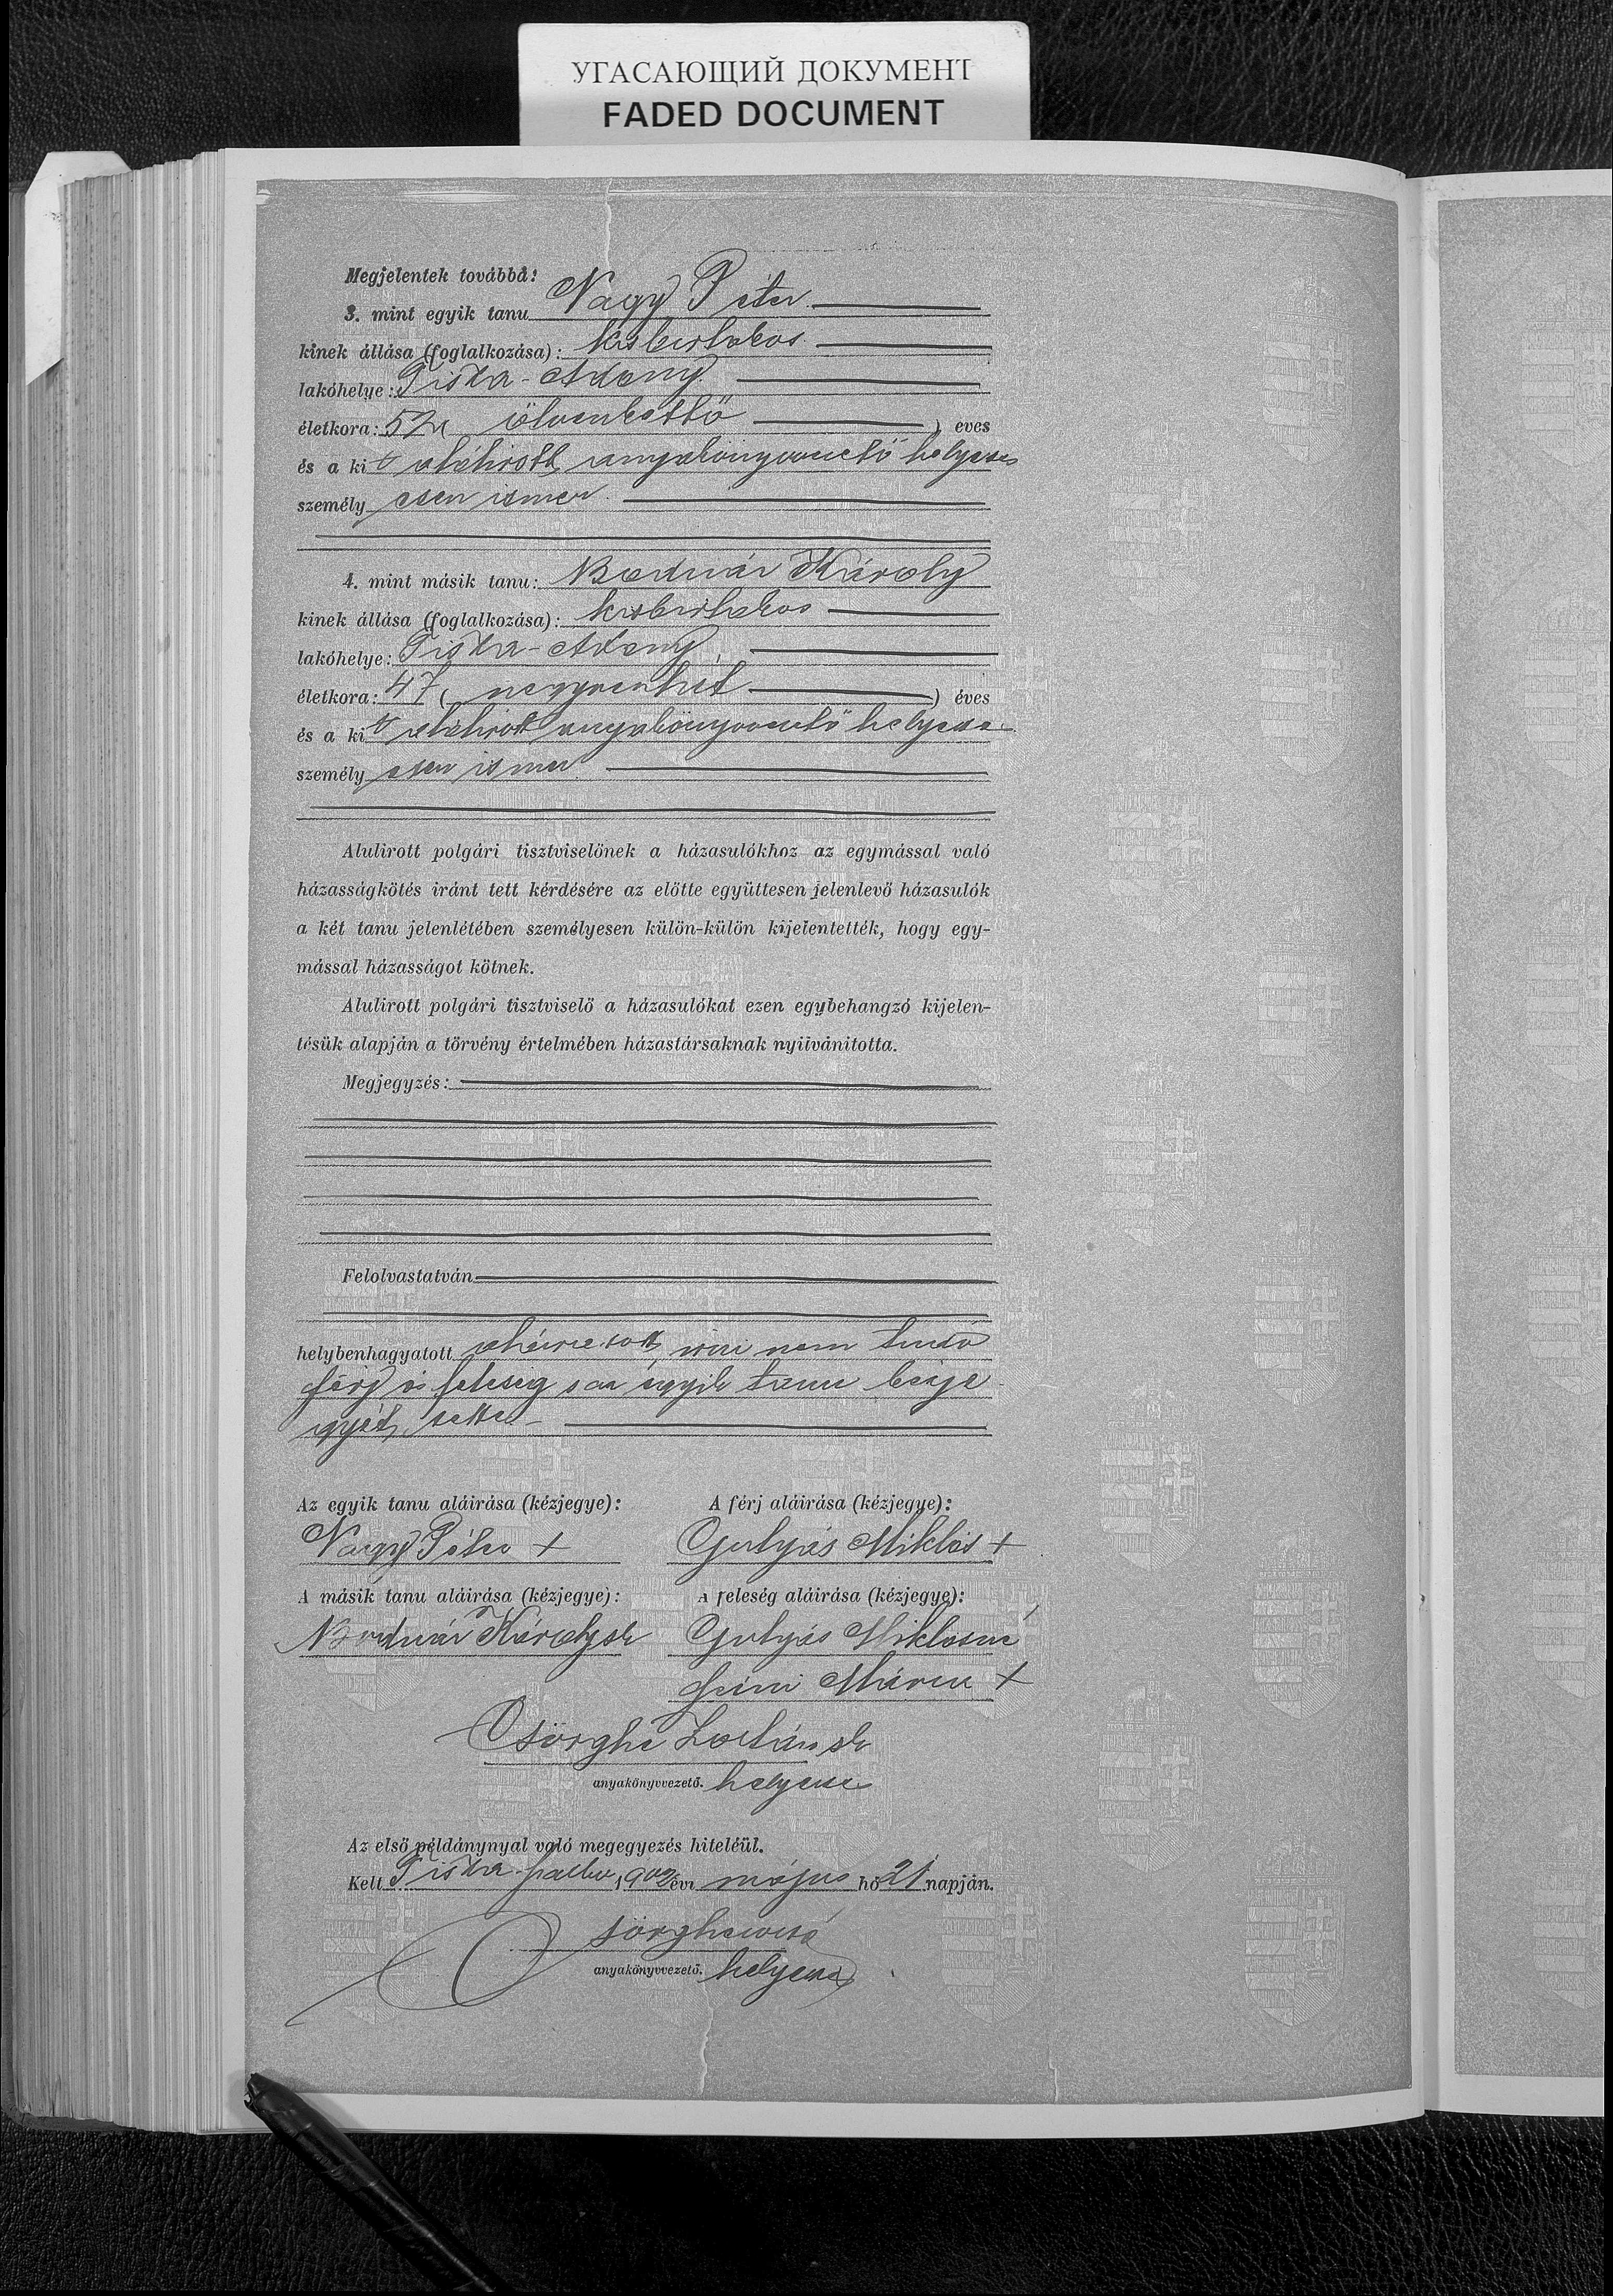 УГАСАЮЩИЙ ДОКУМЕНТ
FADED DOCUMENT
Megjelentek továbbá:
3. mint egyik tanu Nagy Péter
kinek állása (foglalkozása): kisbirtokos
lakóhelye: Tisza-Adony
életkora: 52 ( ötvenkettő ) éves
és a kit aláirott anyakönyvvezető helyettes
személyesen ismer.
4. mint másik tanu: Bodnár Károly
kinek állása (foglalkozása): kisbirtokos
lakóhelye: Tisza-Adony
életkora: 47 ( negyvenhét ) éves
és a kit aláirott anyakönyvvezető helyettes
személyesen ismer
Alulirott polgári tisztviselőnek a házasulókhoz az egymással való
házasságkötés iránt tett kérdésére az előtte együttesen jelenlevő házasulók
a két tanu jelenlétében személyesen külön-külön kijelentették, hogy egy-
mással házasságot kötnek.
Alulirott polgári tisztviselő a házasulókat ezen egybehangzó kijelen-
tésük alapján a törvény értelmében házastársaknak nyilvánitotta.
Megjegyzés:
Felolvastatván
helybenhagyatott aláiratott, irni nem tudó
férj és feleség s az egyik tanu kézje
gyét tette
Az egyik tanu aláirása (kézjegye): A férj aláirása (kézjegye):
Nagy Péter + Gulyás Miklós +
A másik tanu aláirása (kézjegye): A feleség aláirása (kézjegye):
Bodnár Károly sk Gulyás Miklósné
Mária +
Csörghe Zoltán sk
anyakönyvvezető. helyettes
Az első példánynyal való megegyezés hiteléül.
Kelt Tisza- 1902 évi május hó 21 napján.
anyakönyvvezető. helyettes